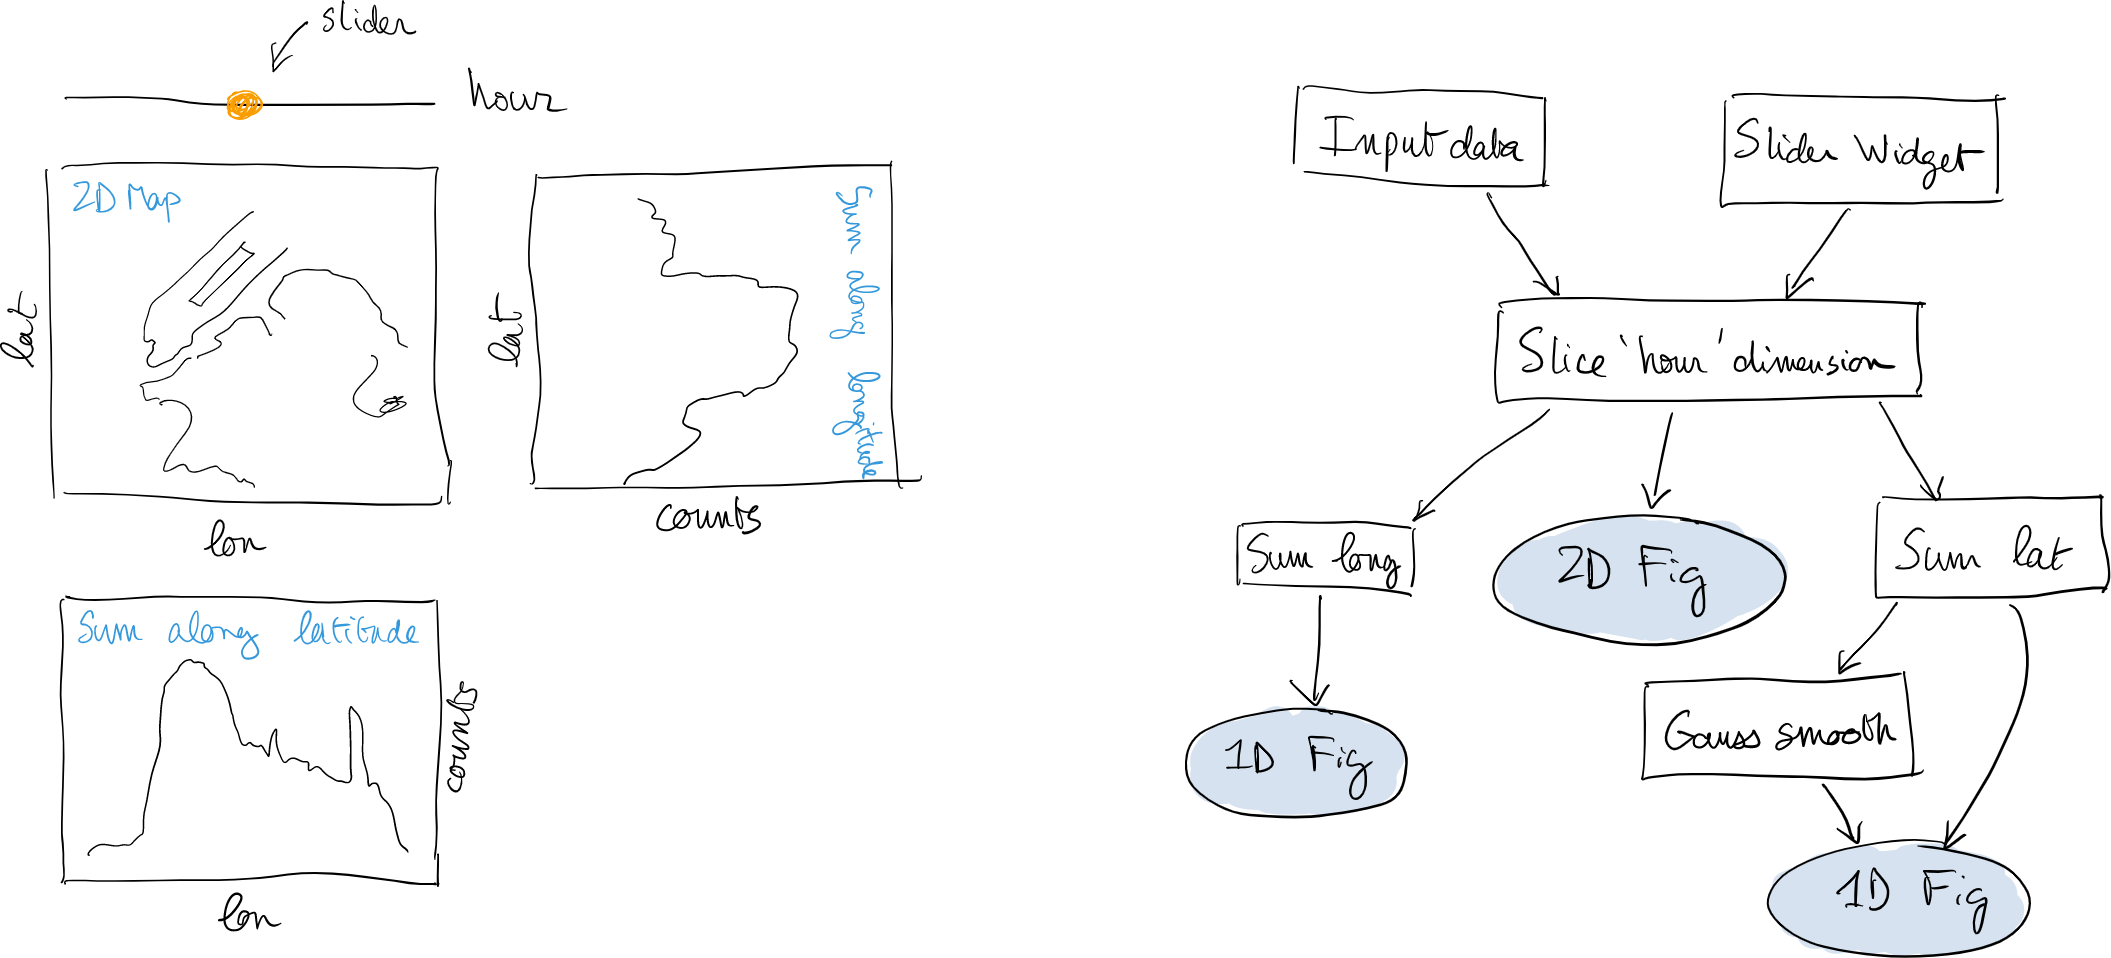 slider
hour
2D Map
lat
lon
Sum along longitude
lat
counts
Sum along latitude
counts
lon
Input data
Slider Widget
Slice 'hour' dimension
Sum long
2D Fig
Sum lat
1D Fig
Gauss smooth
1D Fig